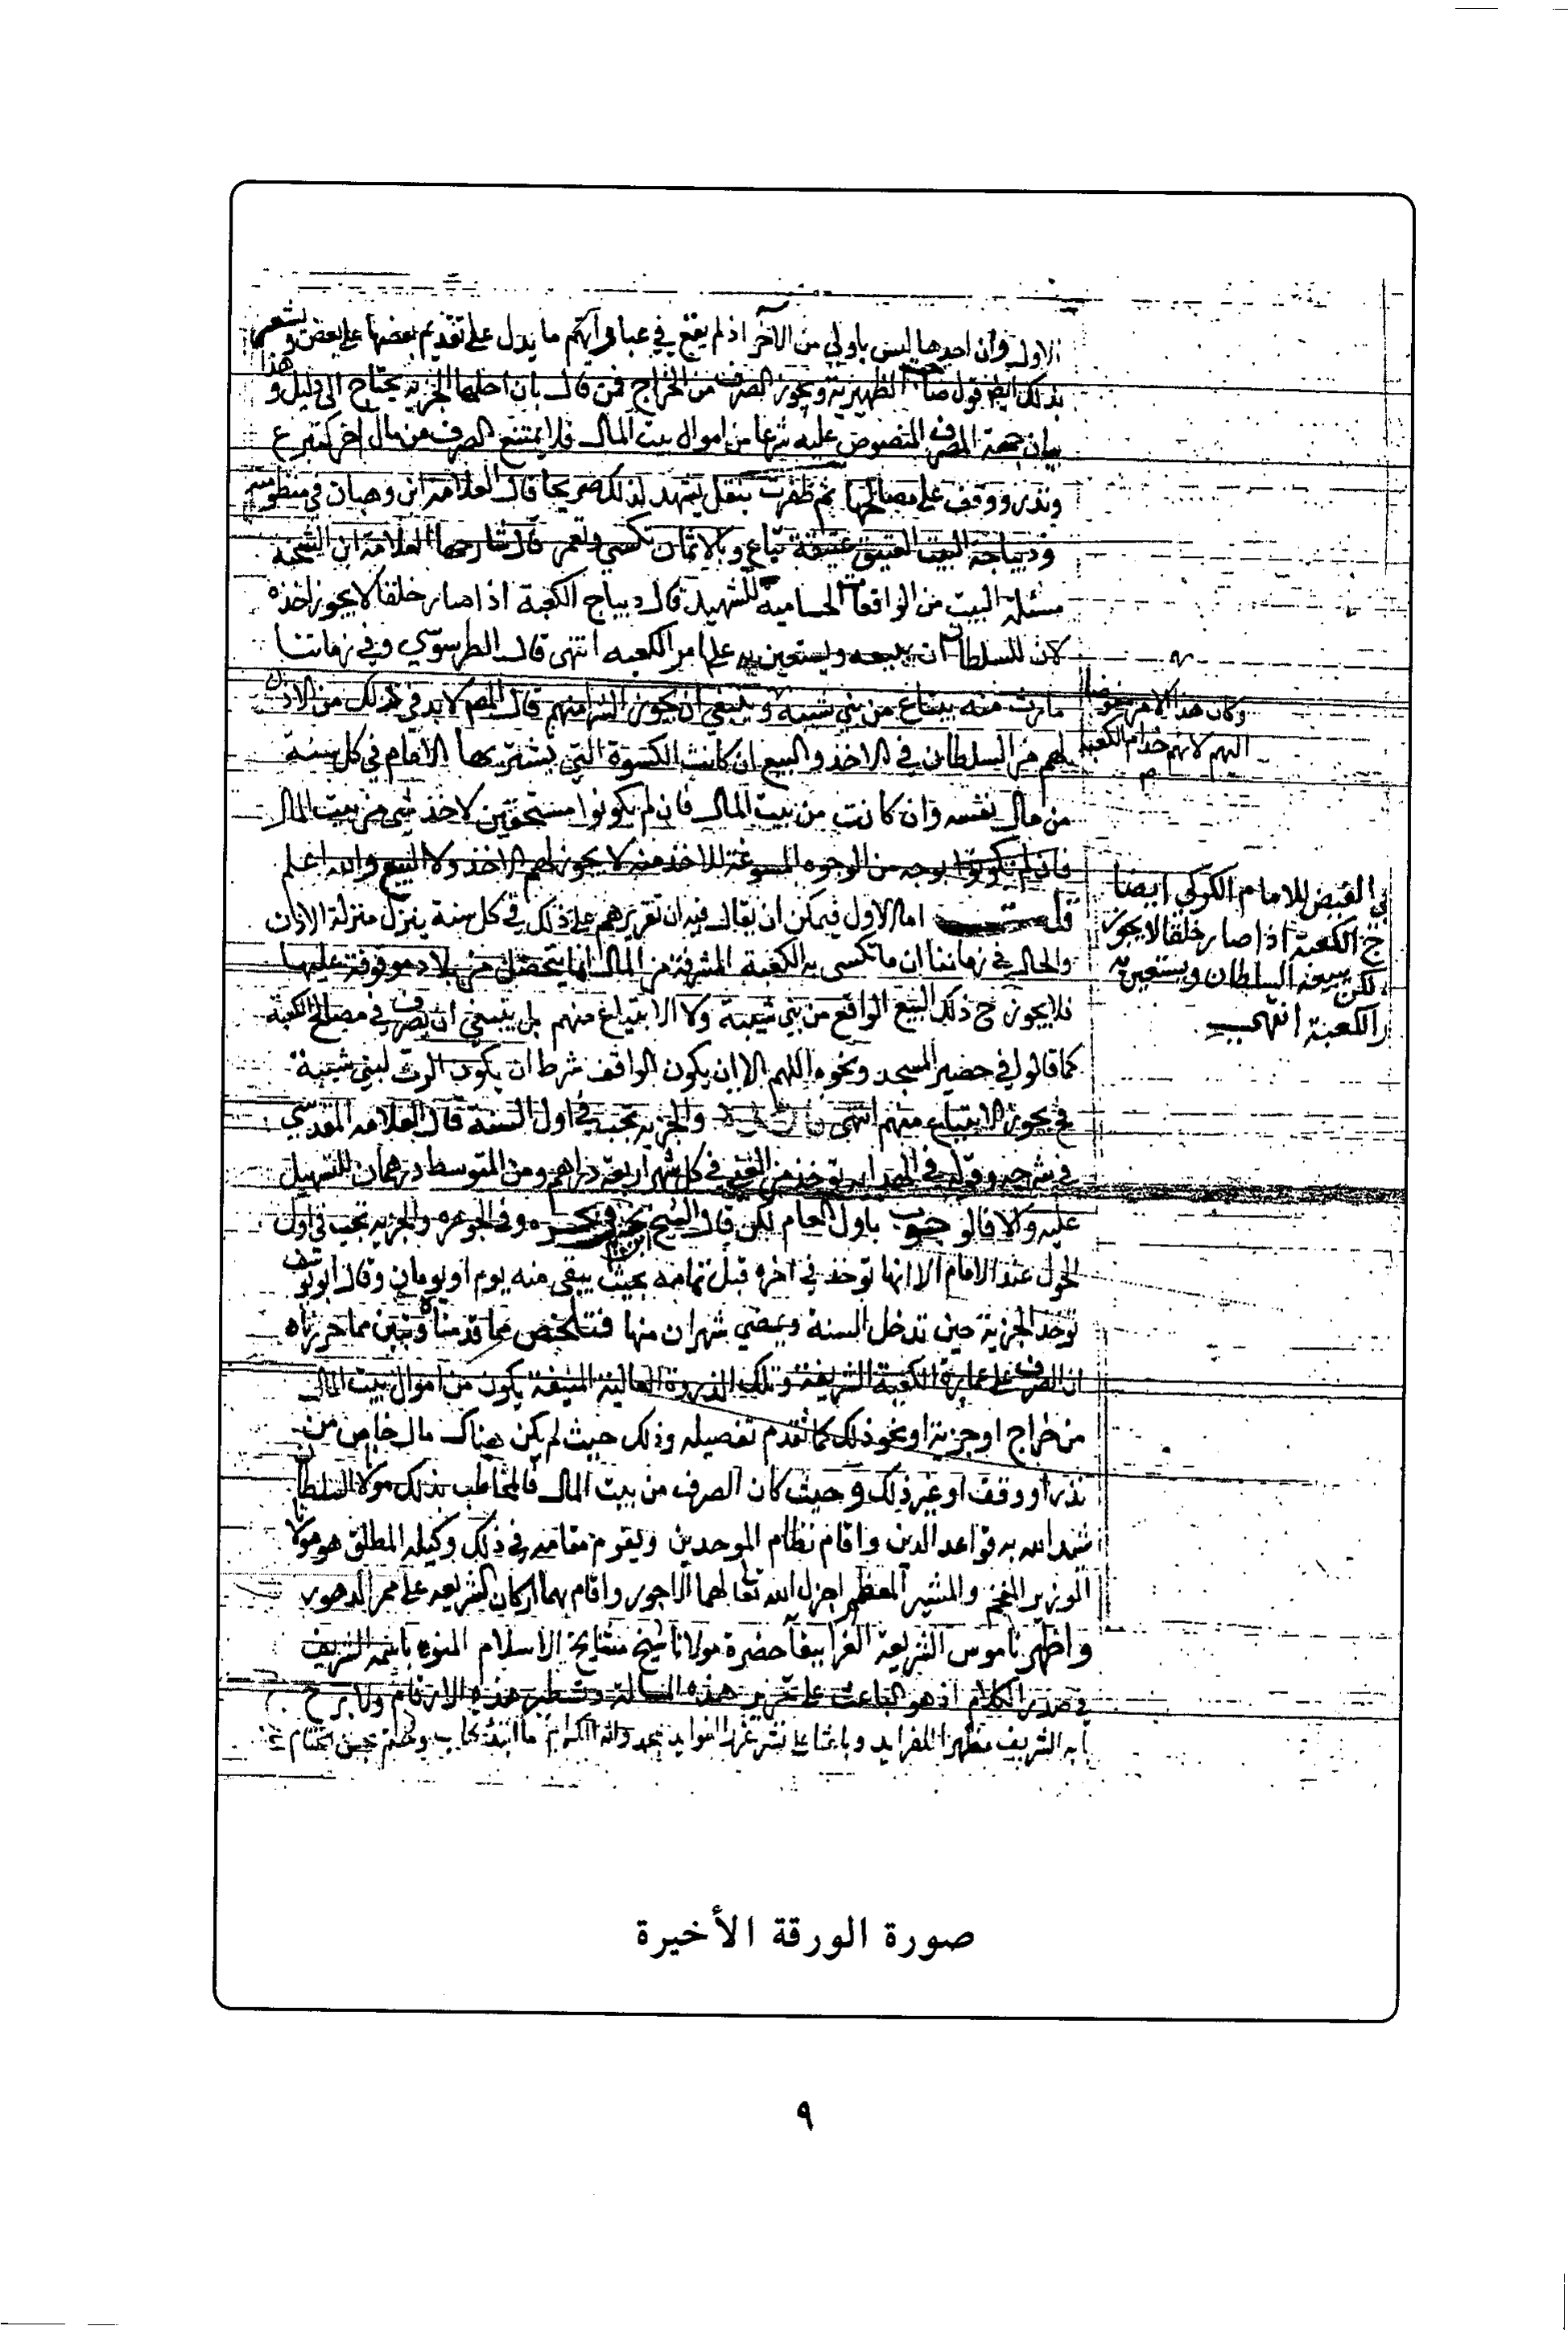 الاول وان احدها ليس باولي من الآخر اذ لم يقع في عباراتهم ما يدل على تقديم بعضها على بعض ويشعر
بذلك ايضا قول صاحب الظهيرية ويجوز الصرف من الخراج فمن قال بان احلها الجزية يحتاج الى دليل وهذا
بيان جهة المصرف المنصوص عليه شرعا من اموال بيت المال فلا يمتنع الصرف من مال اخر كتبرع
ونذر ووقف على مصالحها ثم ظفرت بنقل يشهد لذلك صريحا قال العلامة ابن وهبان في منظومته
وديباجة البيت العتيق عتيقة تباع وبالاثمان تكسى وتعمر قال شارحها العلامة ابن الشحنة
مسئلة البيت من الواقعات الحسامية للشهيد قال ديباج الكعبة اذا صار خلقا لا يجوز اخذه
لان للسلطان ان يبيعه ويستعين به على امر الكعبه انتهى قال الطرسوسي وفي زماننا
منه يبتاع من بني شيبة وينبغي ان يجوز الشرا منهم قال المصـ لابد في ذلك من الاذن
لهم من السلطان في الاخذ والبيع ان كانت الكسوة التي يشتريها الامام في كل سنة
من مال نفسه وان كانت من بيت المال فان لم يكونوا مستحقين لاخذ شي من بيت المال
فان لم يكونوا بوجه من الوجوه المسوغة للاخذ منه لا يجوز لهم الاخذ ولا البيع والله اعلم
قلت اما الاول فيمكن ان يقال فيه ان تقريرهم على ذلك في كل سنة ينزل منزلة الاذن
والحال في زماننا ان ما تكسى به الكعبة المشرفة من المال انما يتحصل من بلاد موقوفة عليها
فلا يجوز ح ذلك البيع الواقع من بني شيبة ولا الابتياع منهم بل ينبغي ان يصرف في مصالح الكعبة
كما قالوا في حصير المسجد ونحوه اللهم الا ان يكون الواقف شرط ان يكون الرث لبني شيبة
فح يجوز الابتياع منهم انتهى والجزية تجب في اول السنة قال العلامة المقدسي
في شرحه وقوله في الهداية توخذ من الغني في كل شهر اربعة دراهم ومن المتوسط درهمان للتسهيل
عليه والا قالوجوب باول العام لكن قال الشيخ وفي الجوهره والجزية تجب في اول
الحول عند الامام الا انها توخذ في اخره قبل تمامه بحيث يبقى منه يوم او يومان وقال ابو يوسف
توخذ الجزية حين تدخل السنة ويمضي شهران منها فتلخص مما قدمناه وتبين مما حررناه
ان الصرف على عمارة الكعبة الشريفة وتلك الذروة العالية المنيفة يكون من اموال بيت المال
من خراج او جزية او نحو ذلك كما تقدم تفصيله وذلك حيث لم يكن هناك مال خاص من
نذر او وقف او غير ذلك وحيث كان الصرف من بيت المال فالمخاطب بذلك مولانا السلطان
شيد الله به قواعد الدين واقام نظام الموحدين ويقوم مقامه في ذلك وكيله المطلق هو مولانا
الوزير المفخم والمشير المعظم اجزل الله تعالى لهما الاجور واقام بهما اركان الشريعه على ممر الدهور
واظهر ناموس الشريعة الغرا ببقاء حضرة مولانا شيخ مشايخ الاسلام المنوه باسمه الشريف
في صدر الكلام اذ هو الباعث على تحرير هذه الرسالة وتسطير هذه الارقام ولا برح
الشريف مظهرا للفرايد وباعثا على نشر غرر الفوايد بمحمد واله الكرام ما ابتدئ كتاب وختم بحسن اختتام
وكان هذا الامر مفوضا
اليهم لانهم خدام الكعبة
الفيض للامام الكركي ايضا
ج الكعبة اذا صار خلقا لا يجوز
لكن يبيعه السلطان ويستعين به
الكعبة انتهى
صورة الورقة الأخيرة
٩